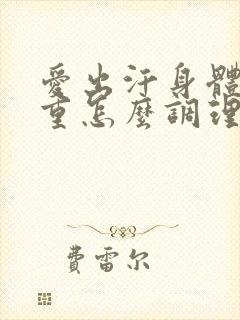 愛出汗身體
重怎麼調理
費雷尔